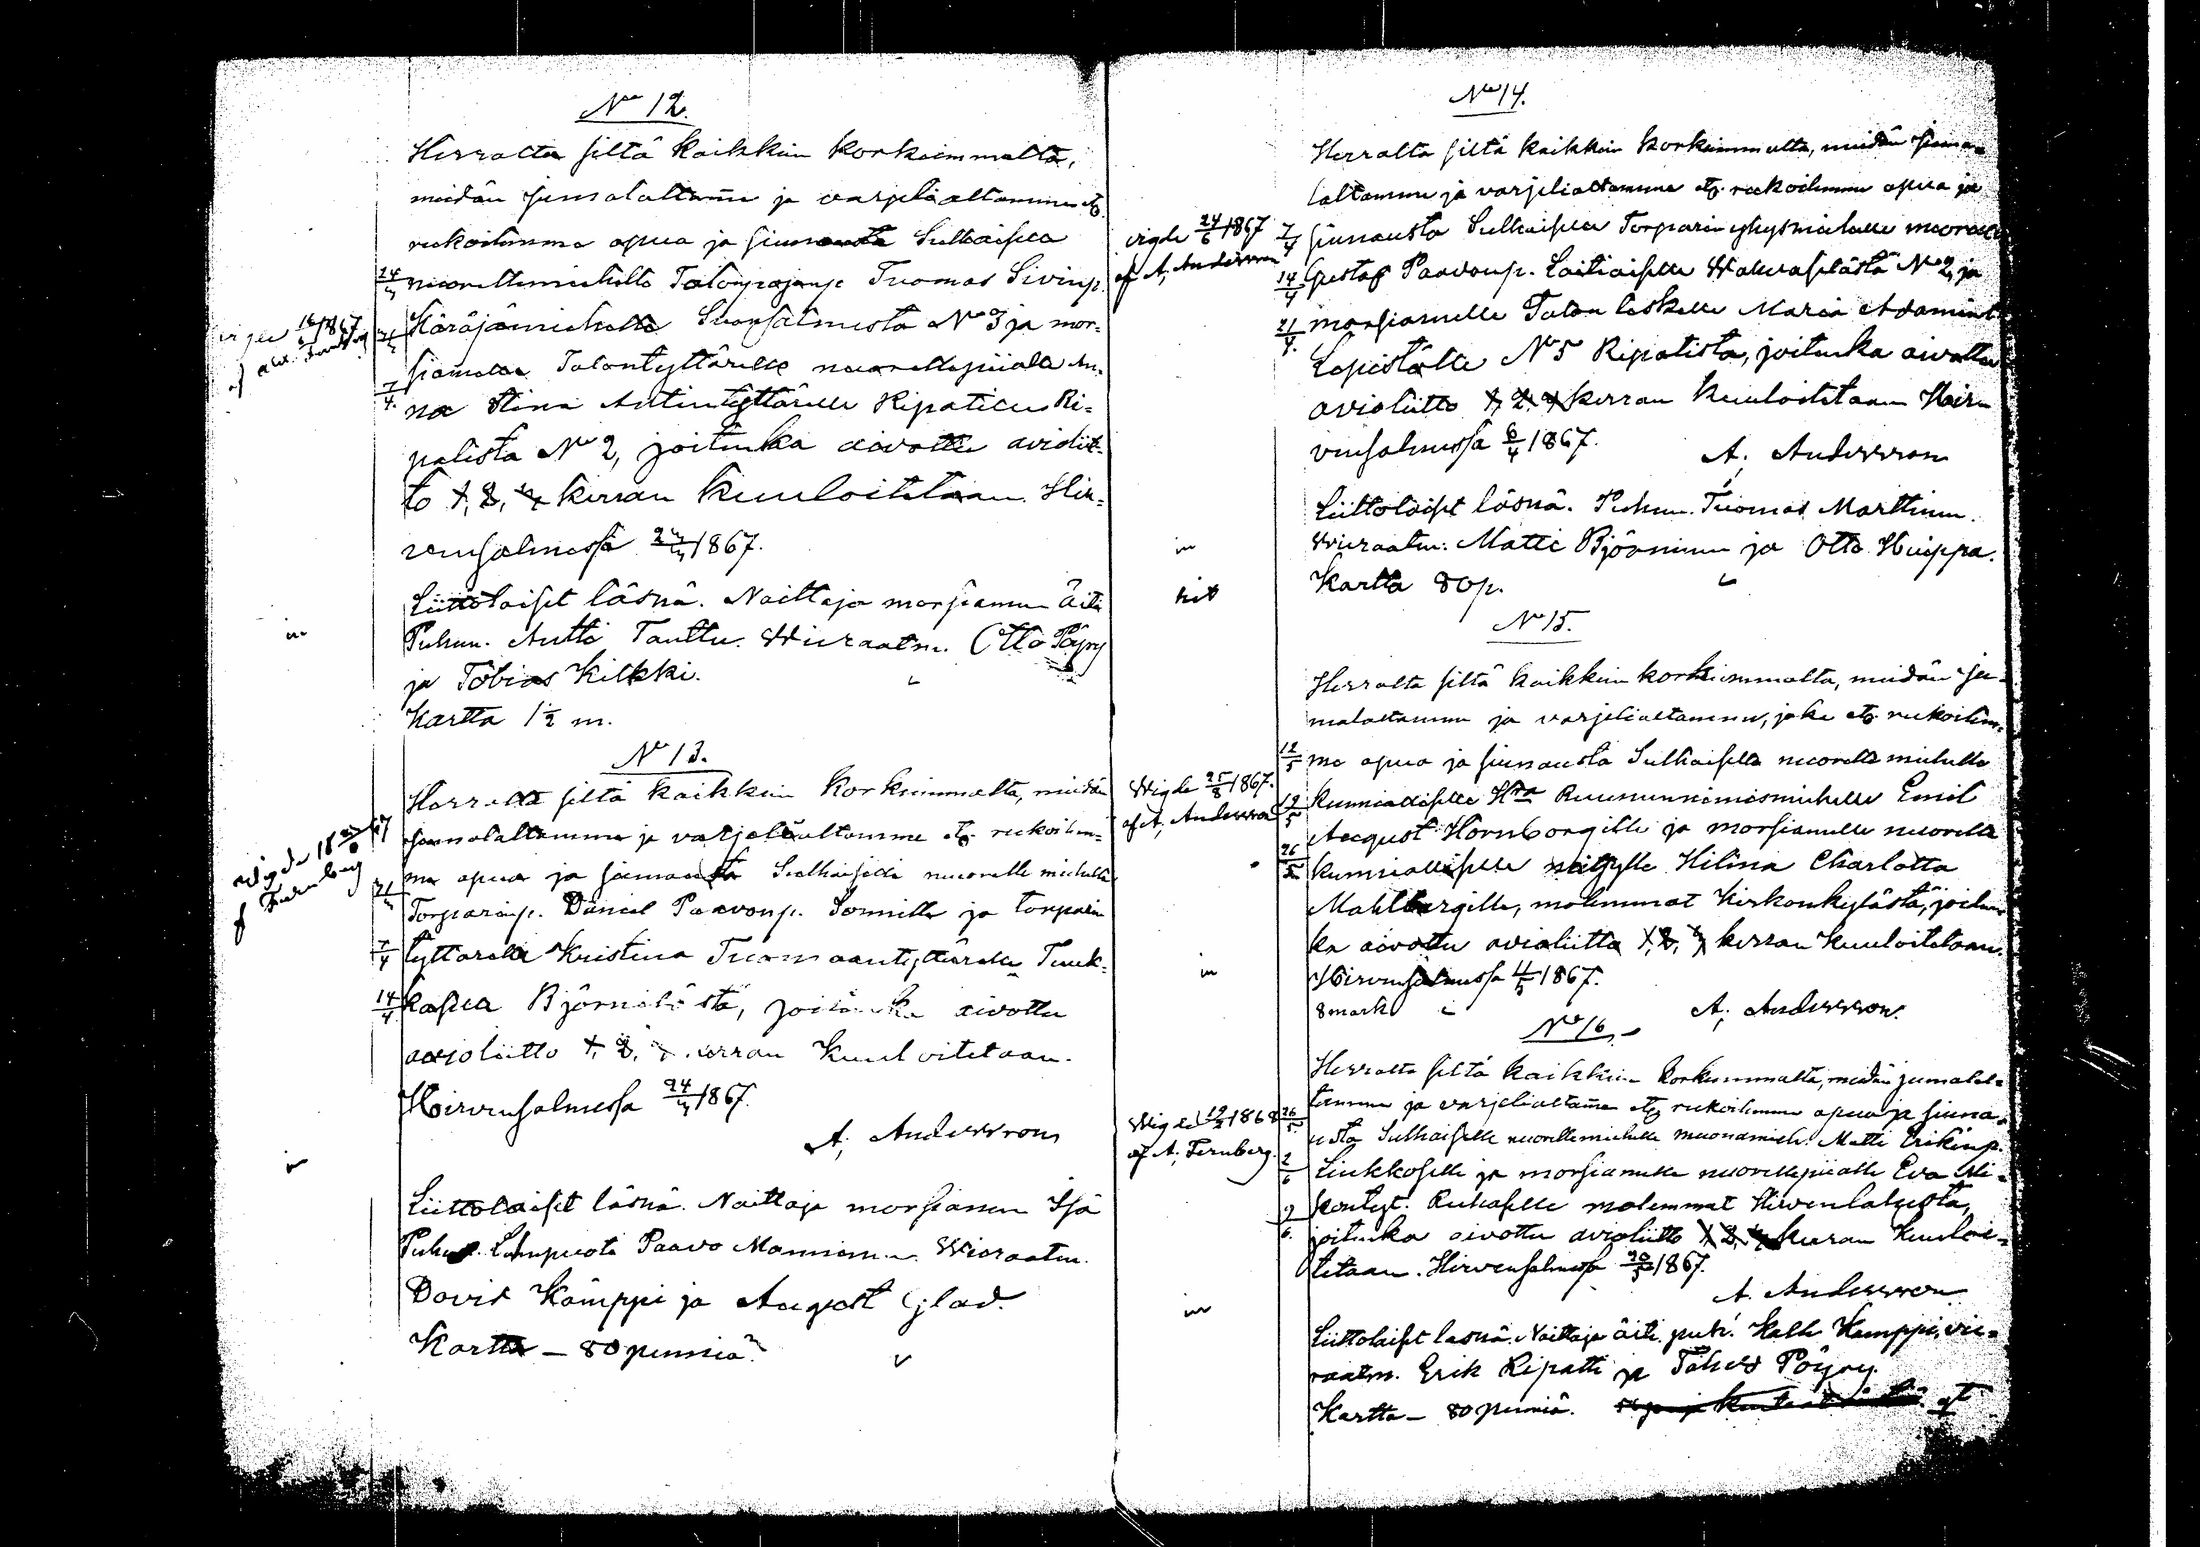 No 12.
Herralta siltä kaikkein korkeimmalta,
meidän jumalaltamme ja varjeliialtamme etc
rukoilemme apua ja siunausta Sulhaisella
24/3 nuorellemiehelle Talonpojanp. Tuomas Sivinp.
Käräjämiehelle Suonsalmesta No 3 ja mor-
siamelle Talontyttärelle nuorellepiialla An-
7/4. na Stina Antintyttärelle Ripatilen Ri-
patista No 2, joitenka aivottu avioliit-
to 1, 2, kerran kuuloitetaan. Hir-
vensalmessa 24/3 1867.
Liittolaiset läsnä. Naittaja morsiamen Äiti
Puhem. Antti Tanttu. Wieraatm. Otto Pöyry
ja Tobias Kilkki.
Kartta 1 1/2 m.
No 13.
Herralta siltä kaikkein korkeimmalta, meidän
jumalaltamme ja varjeliialtamme etc. rukoilem-
me apua ja siunausta Sulhaisella nuorelle miehellä
Torparinp. Daniel Paavonp. Sonnille ja torparin
7/4 tyttärelle Kristina Tuomaantyttärelle Tuuk-
14/4 kasella Björnilästä, joitenka aivottu
avioliitto 1, 2, kerran kuuloitetaan.
Hirvensalmessa 24/3 1867.
A, Andersson
Liittolaiset läsnä. Naittaja morsiamen Isä
Puhem. Paavo Manninen. Wieraatm.
David Kämppi ja August Glad.
Kartta – 80 penniä
No 14.
Herralta siltä kaikkein korkeimmalta, meidän juma-
laltamme ja varjelialtamme etc. rukoilemme apua ja
vigde 24/6 1867 7/4 siunausta Sulhaisella Torparin yksymiehelle nuorelle
af A, Andersson 14/4 Gustaf Paavonp. Laitiaiselle Wahvaselästä No 2, ja
21/4. morsiamelle Talon leskelle Maria Adamint.
Lepistölle No 5 Ripatista, joitenka aivottu
avioliitto 1, 2, kerran kuuloitetaan Hir-
vensalmessa 6/4 1867.
A, Andersson
Liittolaiset läsnä. Puhem. Tuomas Marttinen.
Wieraatm. Matti Björninen ja Otto Huippa.
Kartta 80 p.
No 15.
Herralta siltä kaikkein korkeimmalta, meidän ju-
malaltamme ja varjelialtamme, joka etc. rukoilem-
12/5 me apua ja siunausta Sulhaisella nuorelle miehelle
Wigde 25/8 1867. 19/5 kunniallisella Hra Ruununnimismiehelle Emil
af A, Andersson August Hornborgille ja morsiamelle nuorelle
26/5 kunniallisella neitsylle Hilma Charlotta
Mahlbergille, molemmat Kirkonkylästä, joiten-
ka aivottu avioliitto 1, 2, kerran kuuloitetaan.
Hirvensalmessa 11/5 1867.
8 mark
A, Andersson.
No 16
Herralta siltä kaikkein korkeimmalta, meidän jumalal-
tamme ja varjelialtamme etc rukoilemme apua ja siuna-
Wigde 12/2 1868 26/5 usta Sulhaiselle nuorellemiehelle muonamieh. Matti Erikinp.
af A, Fernberg. 2/6 Liukkoselle ja morsiamelle nuorellepiialle Eva
9/6. molemmat Hirvenlahesta,
joitenka aivottu avioliitto 1, 2, kerran kuuloi-
tetaan. Hirvensalmessa 20/5 1867.
A. Andersson
Liittolaiset läsnä. Naittaja äiti, puh. Kalle Kamppi, vie-
raatm. Erik Ripatti ja Pöyry.
Kartta – 80 penniä.